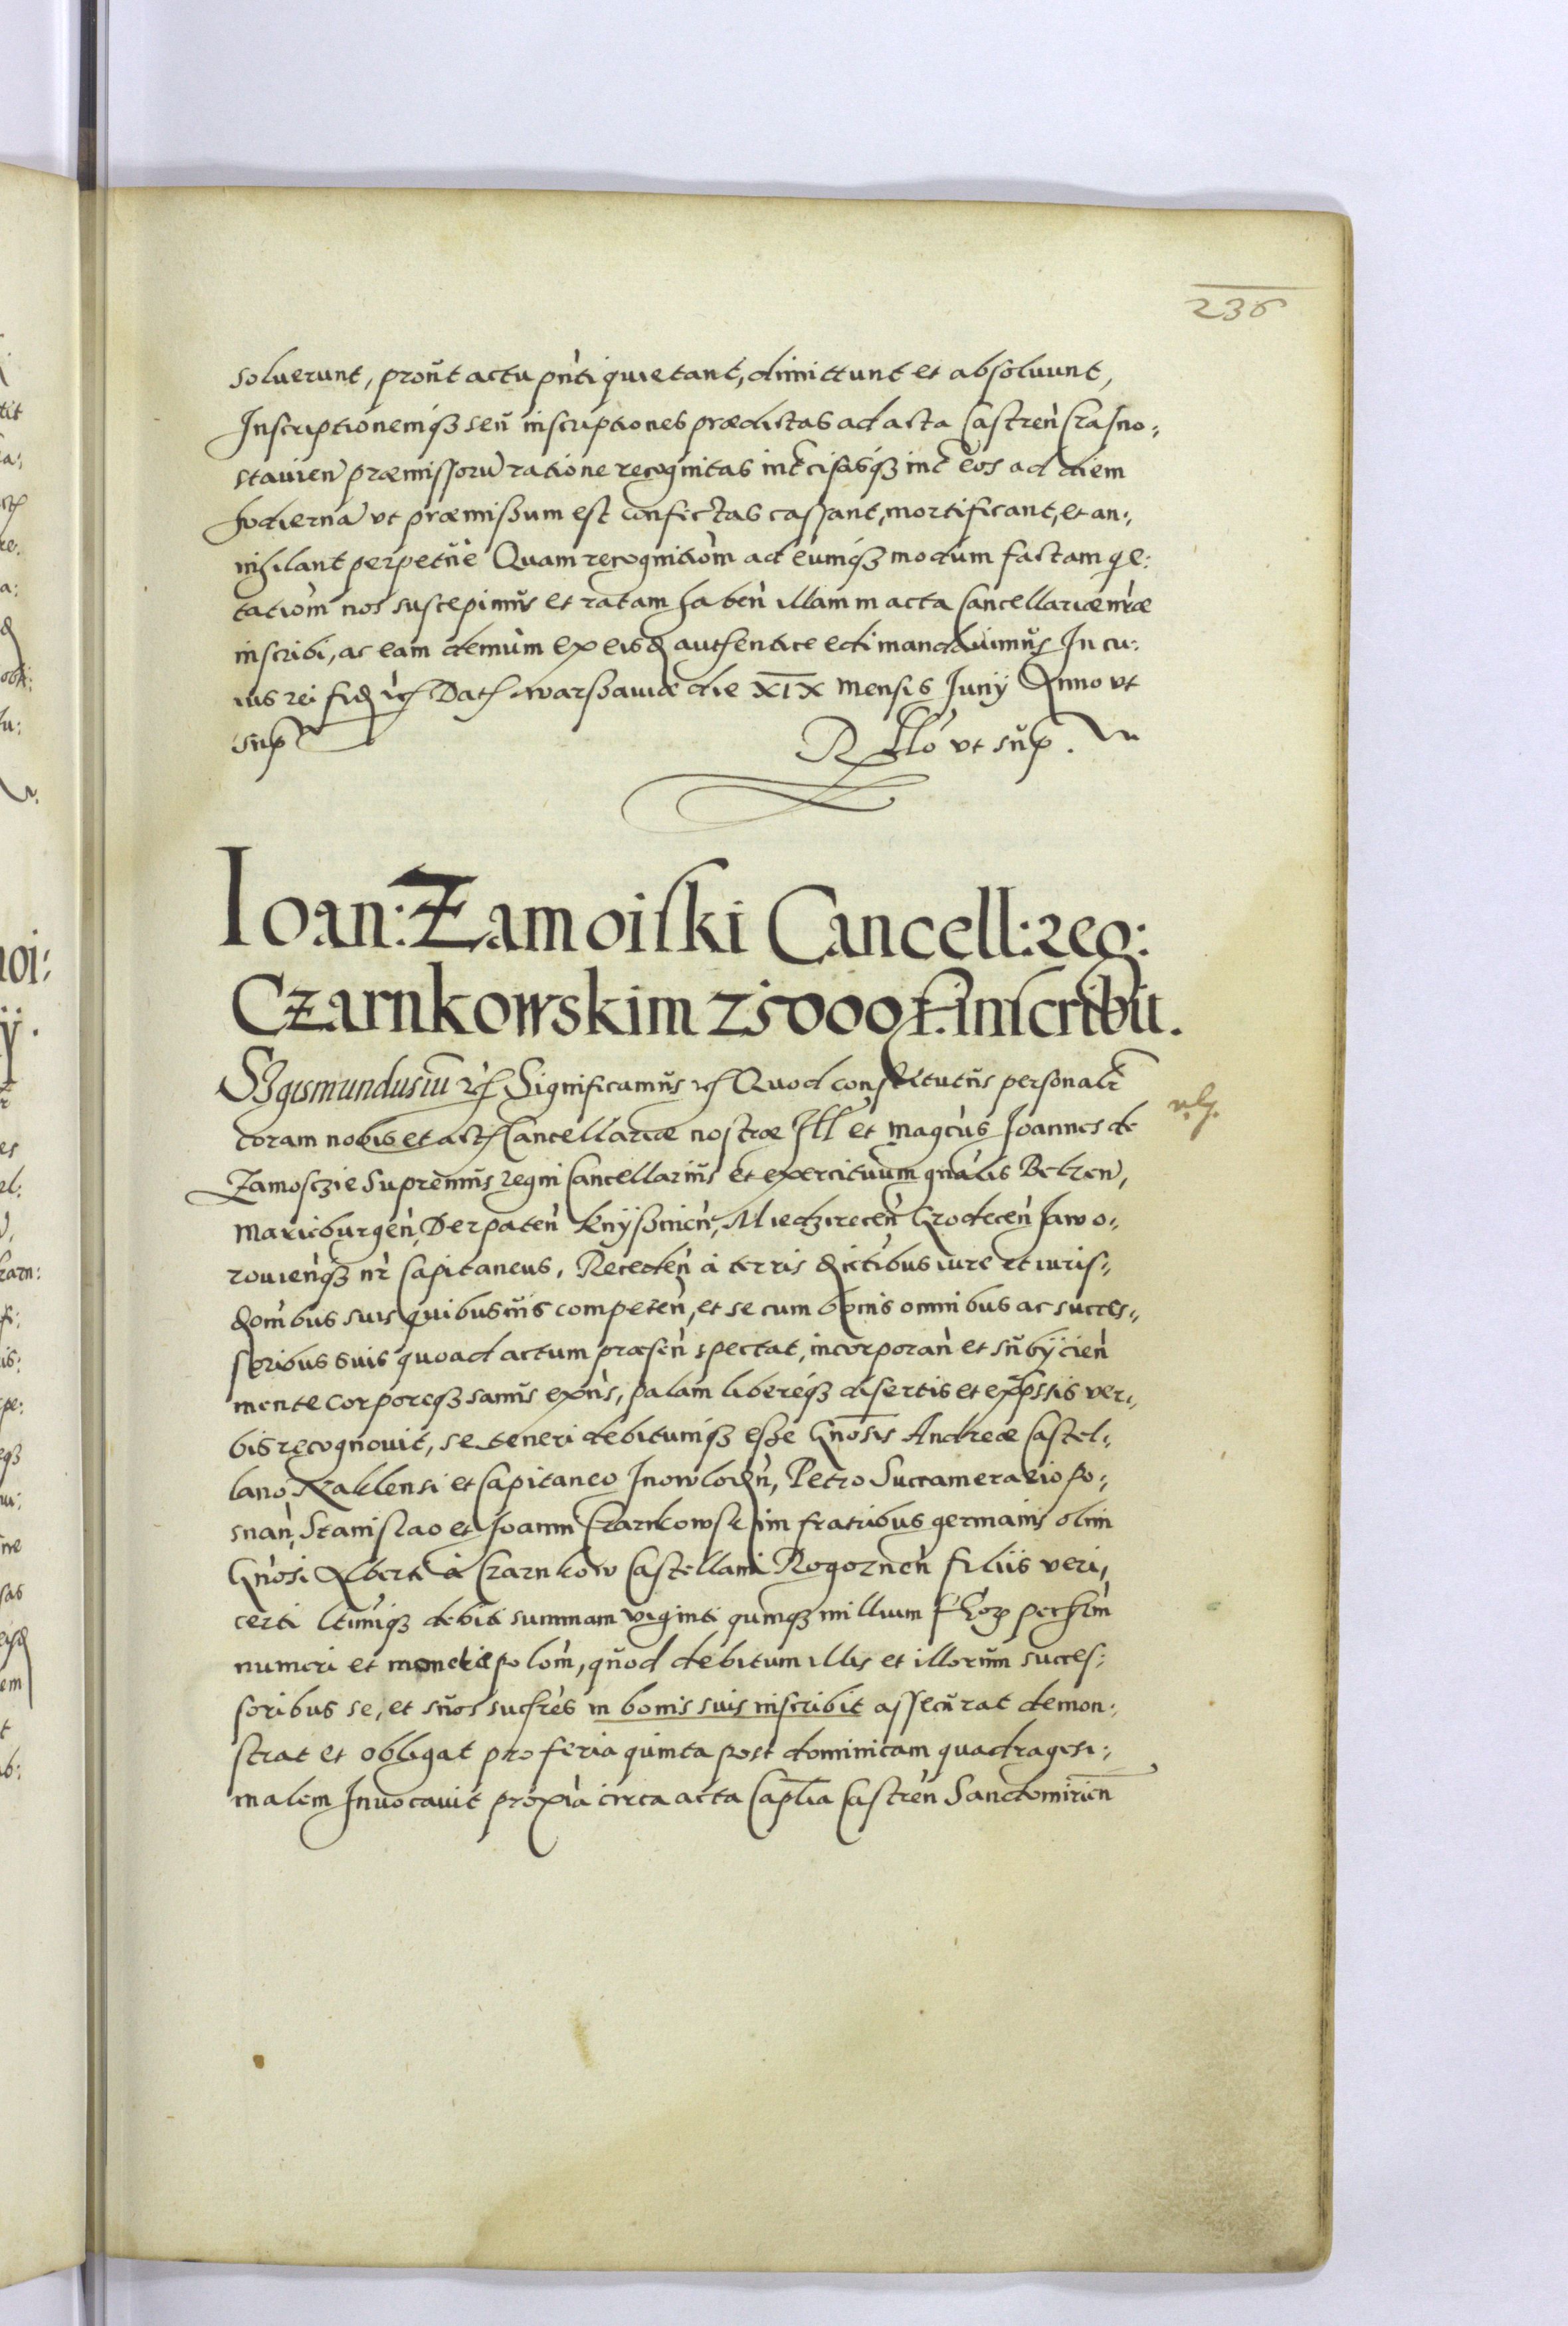 236
soluerunt, prout actu pnti quietant, dimittunt et absoluunt,
Inscriptionemqȝ seu inscriptiones prædictas ad acta Castren Crasno:
stauien præmissoru ratione recognitas intcisasqȝ int eos ad diem
hodierna vt præmissum est confectas cassant, mortificant, et an:
nihilant perpetue Quam recognitiom ad eumqȝ modum factam qe:
tatiom nos suscepimus et ratam haben illam in acta Cancellariæ nræ
inscribi, ac eam demum ex eisd authentice edi mandauimus In cu:
ius rei fid Dat Warssauiæ die XIX mensis Iunij Anno vt
sup
Rllo vt sup.
Ioan: Zamoiski Cancell: reg:
Czarnkowskim 25000 f. inscribit.
Sigismundus iii Significamus Quod constitutus personalr
coram nobis et act Cancellariæ nostræ Ill et magcus Ioannes de
Zamosczie Supremus regni Cancellarius et exercituum gnalis Belzen,
Mariæburgen, Derpaten Knyssinien, Miedzirecen Grodecen Jawo:
rouienqȝ nr Capitaneus, Receden a terris dictibus iure et iuris:
dombus suis quibusuis competen, et se cum bonis omnibus ac succes:
soribus suis quoad actum præsen spectat, incorporan et subijcien
mente corporeqȝ sanus exns, palam libereqȝ disertis et expssis ver:
bis recognouit, se teneri debitumqȝ esse Gnosis Andreæ Castel:
lano Nakłensi et Capitaneo Inowlodn, Petro Succamerario po:
snan, Stanislao et Joanni Czarnkowskim fratribus germanis olim
Gnosi Alberti a Czarnkow Castellani Rogoznen filiis veri,
certi ltimiqȝ debiti summam viginti quinqȝ millium flor pechlm
numeri et monetæ polom, quod debitum illis et illorum succes:
soribus se, et suos sucsres in bonis suis inscribit assecurat demon:
strat et obligat pro feria quinta post dominicam quadragesi:
malem Inuocauit proxia circa acta Caplia Castren Sandomirien